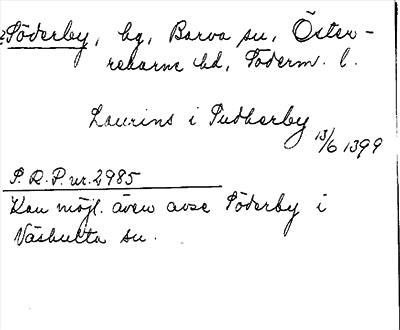 ?Söderby, bg, Barva sn, Öster-
rekarne hd, Söderm. l.
Laurins i Sudherby
13/6 1399
S.R.P. nr. 2985
Kan möjl. även avse Söderby i
Väshulta sn.